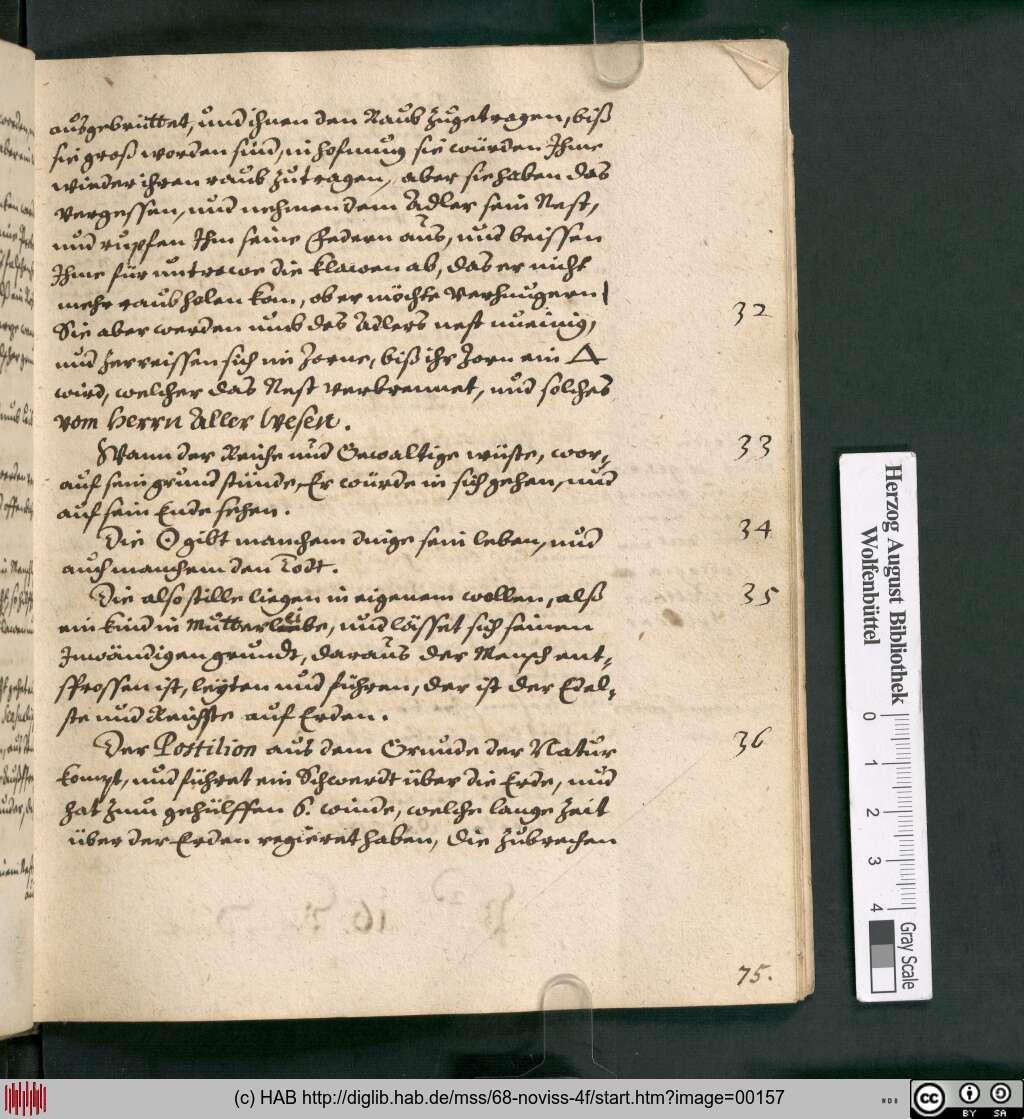 ausgebrüttet, und ihnen den Raub zugetragen, biß
sie groß worden sind, in hofnung sie würden Ihme
wieder ihren raub zutragen, aber sie haben das
vergessen, und nehmen dem Adler sein Nest,
und rupfen Ihm seine Federn aus, und beissen
Ihme für untrewe die klawen ab, das er nicht
mehr raub holen kan, ob er möchte verhungern
Sie aber werden umb des Adlers nest uneinig,
32
und zerreissen sich im Zorne, biß ihr Zorn ein △
wird, welcher das Nest verbrennet, und solches
vom Herrn Aller Wesen.
Wann der Reiche und Gewaltige wüste, wor-
33
auf sein grund stünde, Er würde in sich gehen, und
auf sein Ende sehen.
Die ☉ gibt manchem dinge sein leben, und
34
auch manchem den Todt.
Die also stille liegen in eigenem wollen, alß
35
ein kind in Mutterleibe, und lässet sich seinen
Inwändigen grundt, daraus der Mensch ent-
sprossen ist, leyten und führen, der ist der Edel-
ste und Reichste auf Erden.
Der Postilion aus dem Grunde der Natur
36
kompt, und führet ein Schwerdt über die Erde, und
hat zum gehülffen 6. winde, welche lange Zeit
über der Erden regieret haben, die zubrechen
75.
Herzog August Bibliothek
Wolfenbüttel
0 1 2 3 4
Gray Scale
(c) HAB http://diglib.hab.de/mss/68-noviss-4f/start.htm?image=00157
WDB
cc BY SA